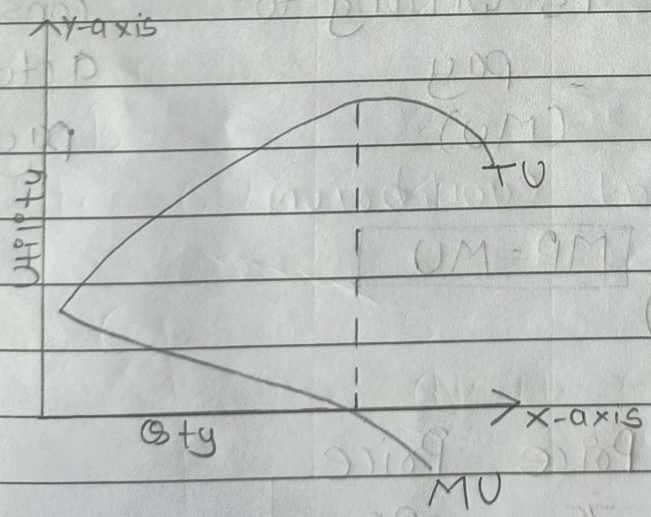 Y-axis
TU
Utility
X-axis
Qty
MU